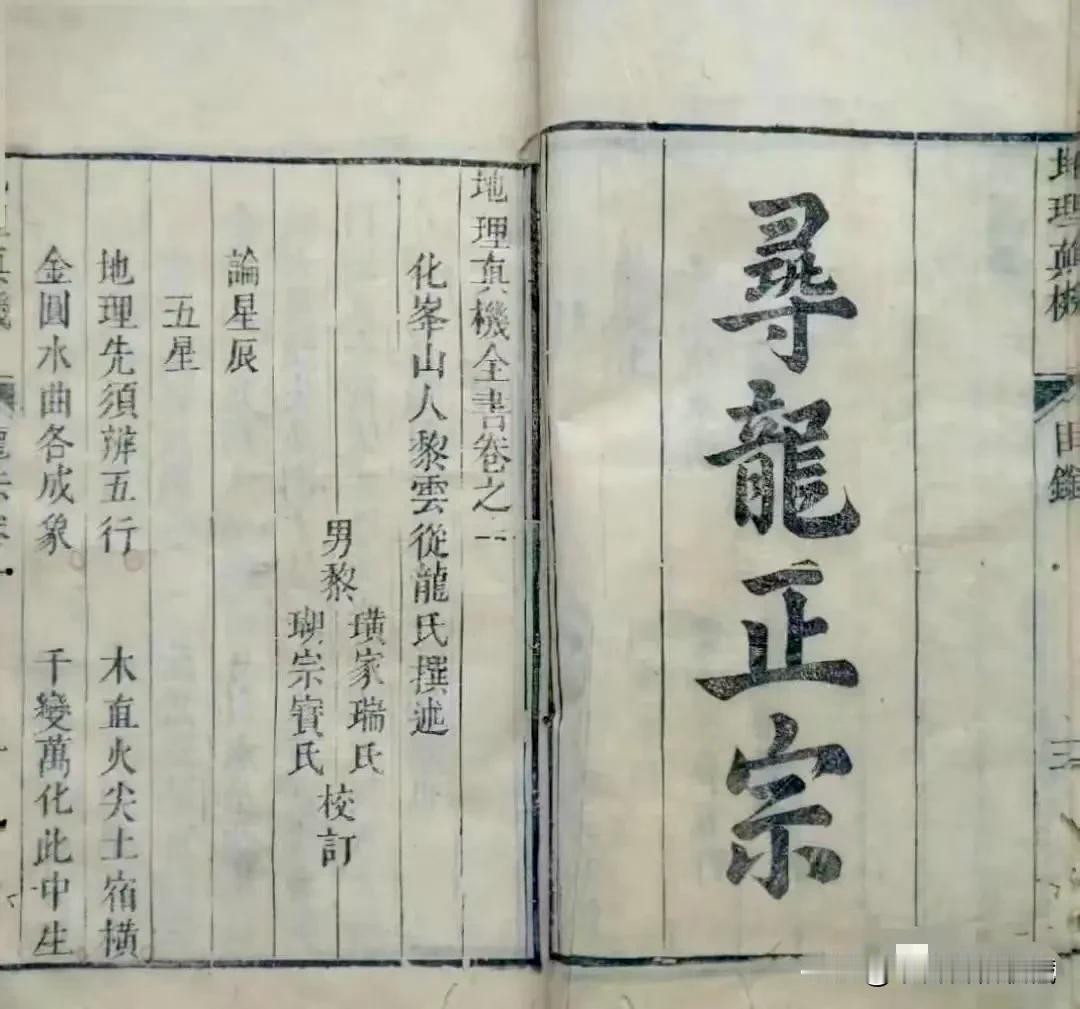 地理真機
目錄
三
尋龍正宗
地理真機全書卷之一
化峯山人黎雲從龍氏撰述
男黎
璜家瑞氏
瑚宗寳氏
校訂
論星辰
五星
地理先須辨五行 木直火尖土宿橫
金圓水曲各成象 千變萬化此中生